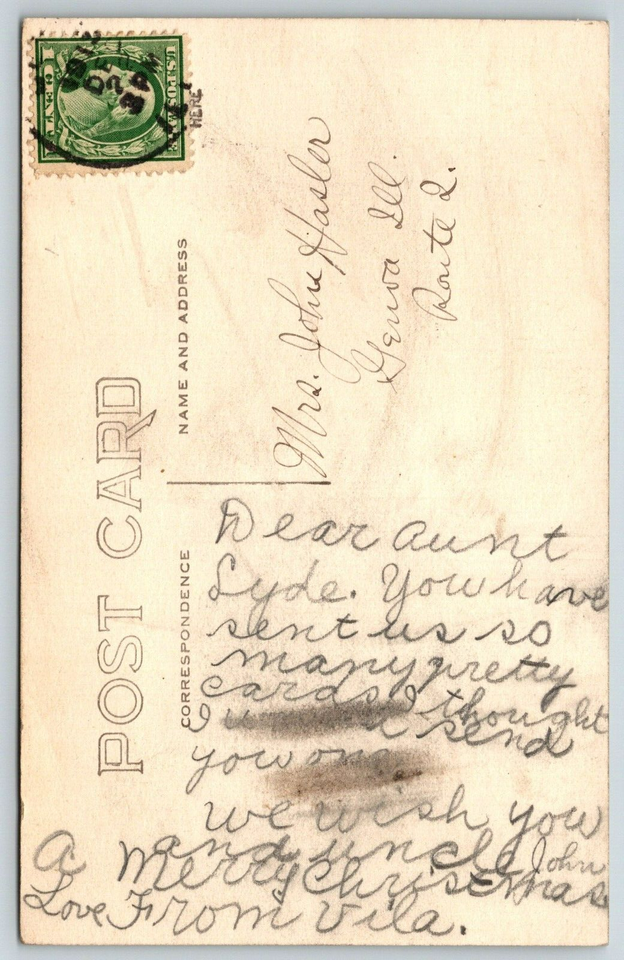 POST CARD
NAME AND ADDRESS
CORRESPONDENCE
HERE
Mrs. John Hasler
Genva Ill.
Route 2.
Dear aunt
Lyde. You have
sent us so
many pretty
cards I thought
I send
you one
we wish you
and uncle John
A Merry Christmas
Love From Vila.